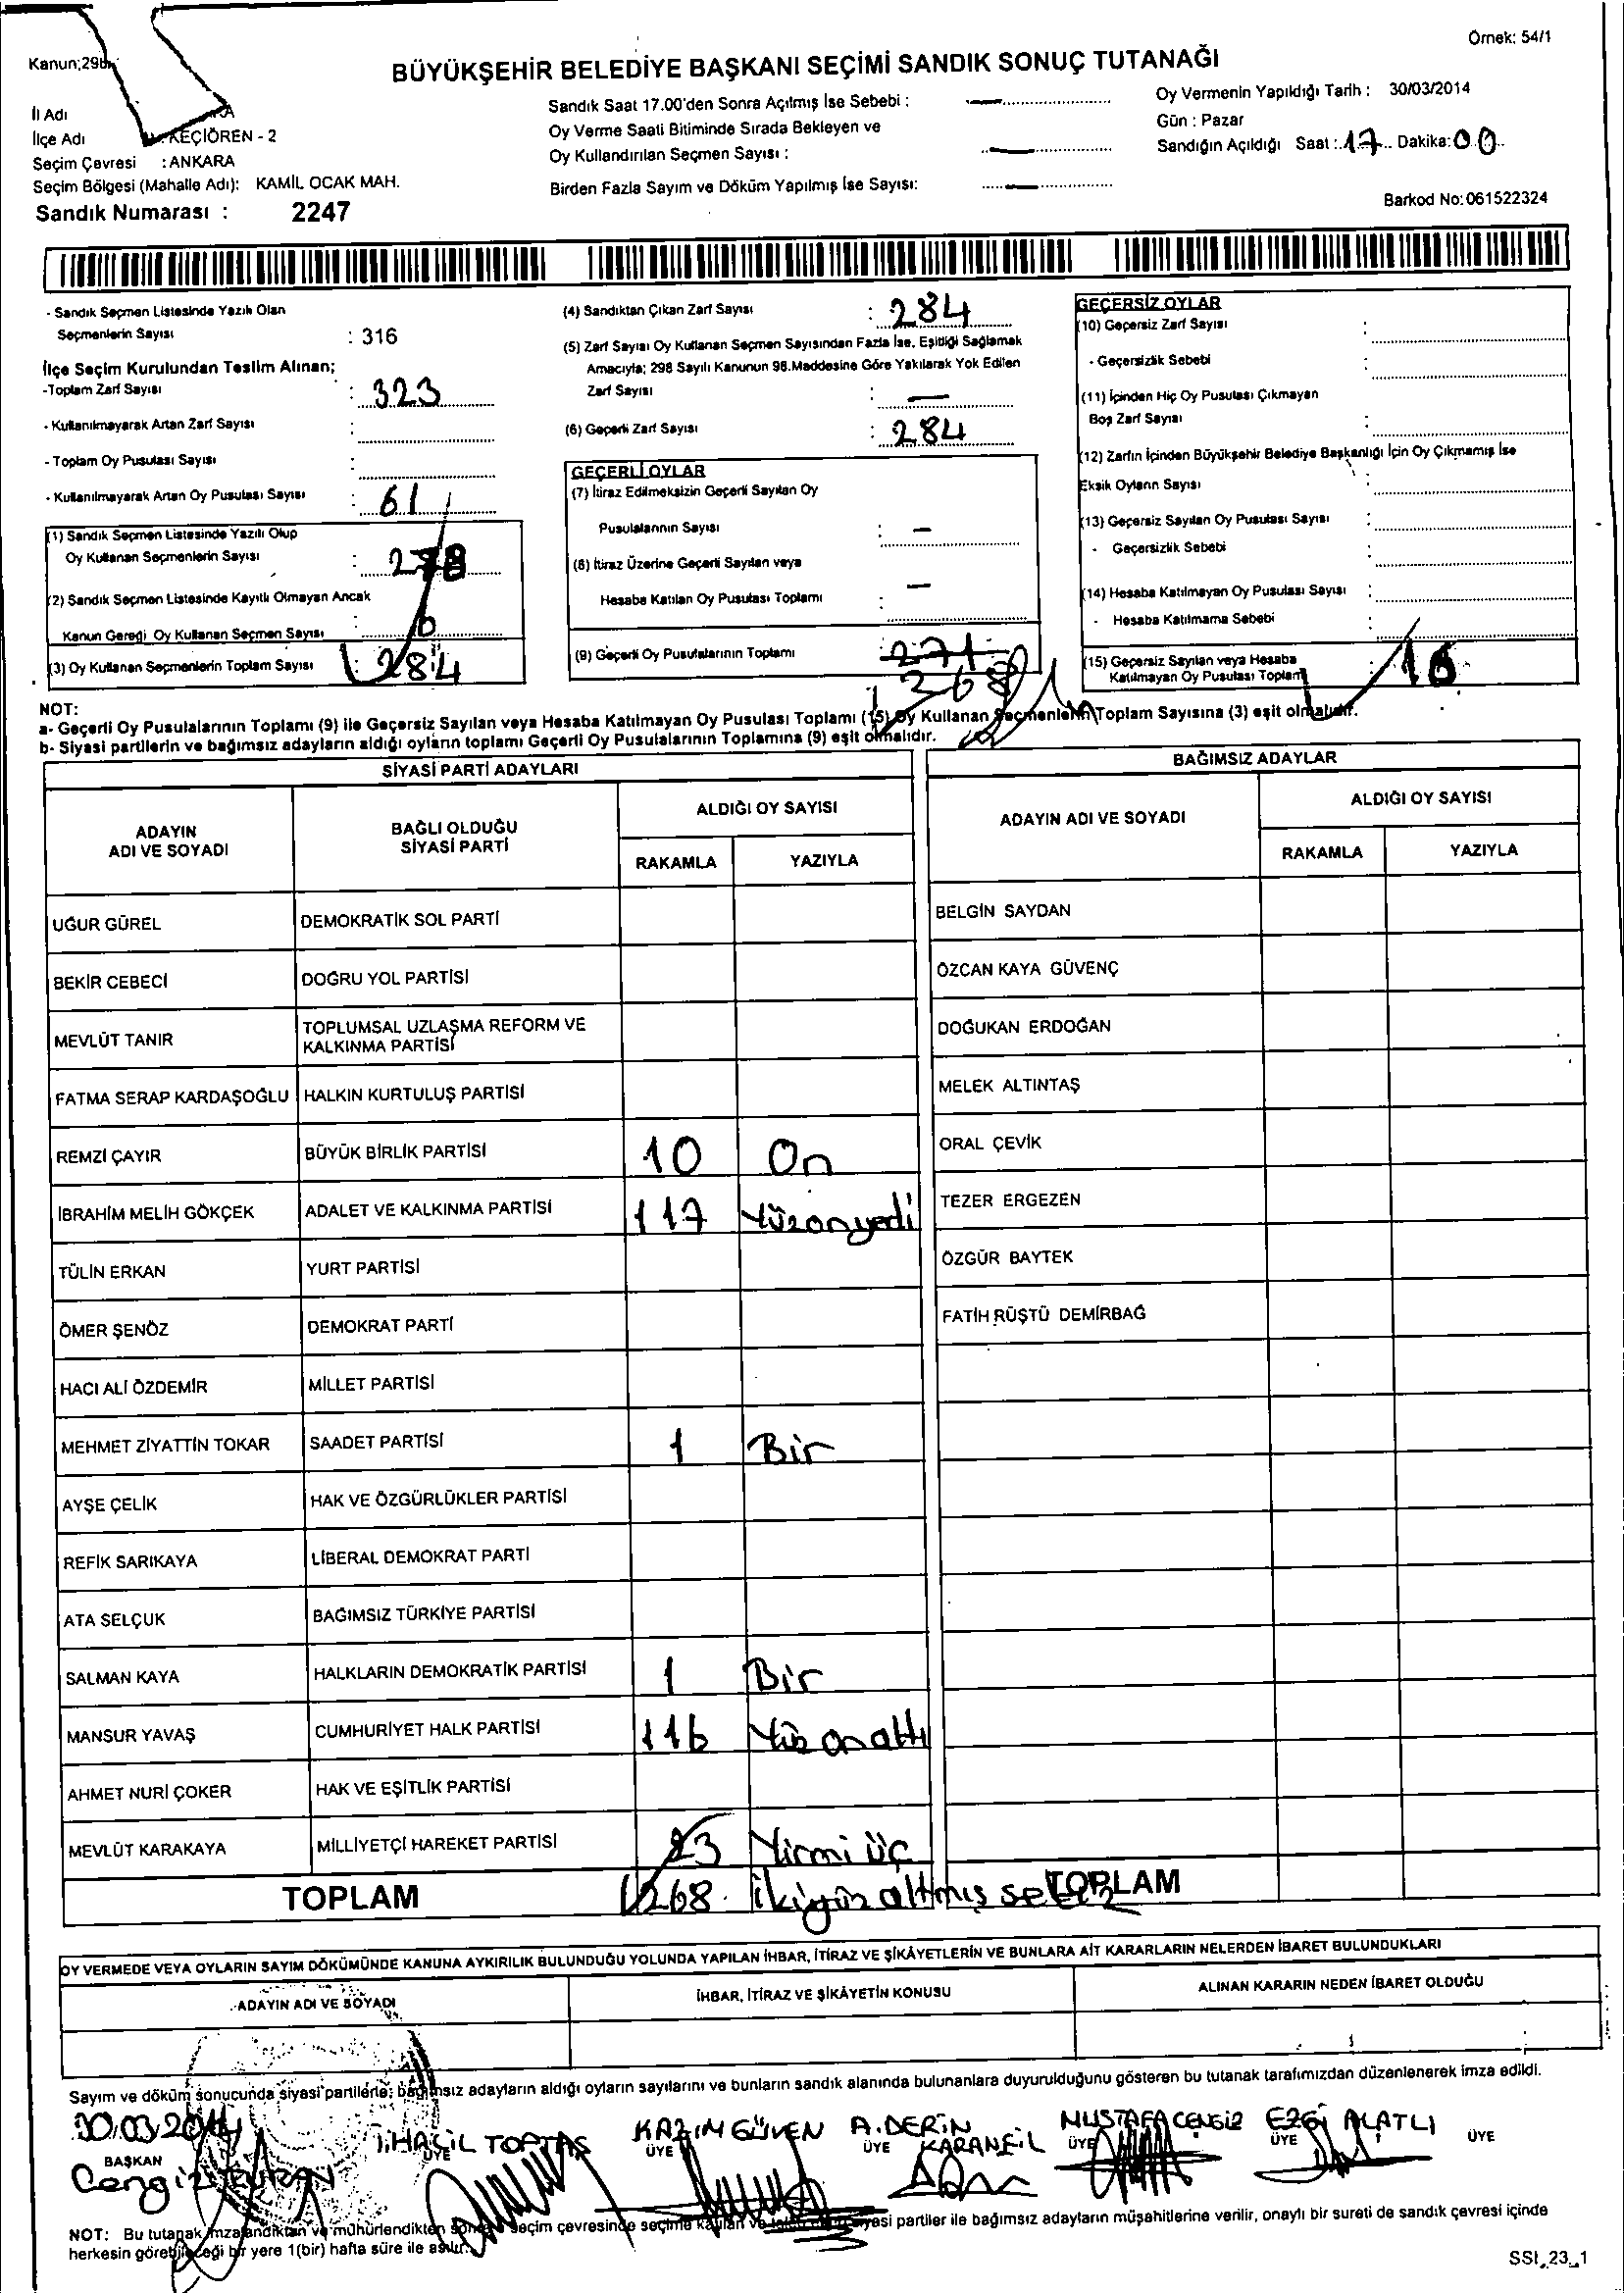 Örnek: 54/1
BÜYÜKŞEHİR BELEDİYE BAŞKANI SEÇİMİ SANDIK SONUÇ TUTANAĞI
İl Adı
İlçe Adı KEÇİÖREN - 2
Seçim Çevresi : ANKARA
Seçim Bölgesi (Mahalle Adı): KAMİL OCAK MAH.
Sandık Numarası : 2247
Sandık Saat 17.00'den Sonra Açılmış İse Sebebi :
Oy Verme Saati Bitiminde Sırada Bekleyen ve
Oy Kullandırılan Seçmen Sayısı :
Birden Fazla Sayım ve Döküm Yapılmış İse Sayısı:
Oy Vermenin Yapıldığı Tarih : 30/03/2014
Gün : Pazar
Sandığın Açıldığı Saat : 17 Dakika: 00
Barkod No:061522324
- Sandık Seçmen Listesinde Yazılı Olan
Seçmenlerin Sayısı : 316
İlçe Seçim Kurulundan Teslim Alınan;
-Toplam Zarf Sayısı : 323
- Kullanılmayarak Artan Zarf Sayısı :
- Toplam Oy Pusulası Sayısı :
- Kullanılmayarak Artan Oy Pusulası Sayısı : 61
(1) Sandık Seçmen Listesinde Yazılı Olup
Oy Kullanan Seçmenlerin Sayısı : 278
(2) Sandık Seçmen Listesinde Kayıtlı Olmayan Ancak
Kanun Gereği Oy Kullanan Seçmen Sayısı : 6
(3) Oy Kullanan Seçmenlerin Toplam Sayısı : 284
(4) Sandıktan Çıkan Zarf Sayısı : 284
(5) Zarf Sayısı Oy Kullanan Seçmen Sayısından Fazla İse, Eşitliği Sağlamak
Amacıyla; 298 Sayılı Kanunun 98.Maddesine Göre Yakılarak Yok Edilen
Zarf Sayısı : —
(6) Geçerli Zarf Sayısı : 284
GEÇERLİ OYLAR
(7) İtiraz Edilmeksizin Geçerli Sayılan Oy
Pusulalarının Sayısı : —
(8) İtiraz Üzerine Geçerli Sayılan veya
Hesaba Katılan Oy Pusulası Toplamı : —
(9) Geçerli Oy Pusulalarının Toplamı 271
268
GEÇERSİZ OYLAR
(10) Geçersiz Zarf Sayısı :
- Geçersizlik Sebebi :
(11) İçinden Hiç Oy Pusulası Çıkmayan
Boş Zarf Sayısı :
(12) Zarfın İçinden Büyükşehir Belediye Başkanlığı İçin Oy Çıkmamış İse
Eksik Oyların Sayısı :
(13) Geçersiz Sayılan Oy Pusulası Sayısı :
- Geçersizlik Sebebi :
(14) Hesaba Katılmayan Oy Pusulası Sayısı :
- Hesaba Katılmama Sebebi :
(15) Geçersiz Sayılan veya Hesaba
Katılmayan Oy Pusulası Toplamı : 16
NOT:
a- Geçerli Oy Pusulalarının Toplamı (9) ile Geçersiz Sayılan veya Hesaba Katılmayan Oy Pusulası Toplamı (15) Oy Kullanan Seçmenlerin Toplam Sayısına (3) eşit olmalıdır.
b- Siyasi partilerin ve bağımsız adayların aldığı oyların toplamı Geçerli Oy Pusulalarının Toplamına (9) eşit olmalıdır.
SİYASİ PARTİ ADAYLARI
ADAYIN ADI VE SOYADI
BAĞLI OLDUĞU SİYASİ PARTİ
ALDIĞI OY SAYISI
RAKAMLA YAZIYLA
UĞUR GÜREL DEMOKRATİK SOL PARTİ
BEKİR CEBECİ DOĞRU YOL PARTİSİ
MEVLÜT TANIR TOPLUMSAL UZLAŞMA REFORM VE KALKINMA PARTİSİ
FATMA SERAP KARDAŞOĞLU HALKIN KURTULUŞ PARTİSİ
REMZİ ÇAYIR BÜYÜK BİRLİK PARTİSİ 10 On
İBRAHİM MELİH GÖKÇEK ADALET VE KALKINMA PARTİSİ 117 Yüzonyedi
TÜLİN ERKAN YURT PARTİSİ
ÖMER ŞENÖZ DEMOKRAT PARTİ
HACI ALİ ÖZDEMİR MİLLET PARTİSİ
MEHMET ZİYATTİN TOKAR SAADET PARTİSİ 1 Bir
AYŞE ÇELİK HAK VE ÖZGÜRLÜKLER PARTİSİ
REFİK SARIKAYA LİBERAL DEMOKRAT PARTİ
ATA SELÇUK BAĞIMSIZ TÜRKİYE PARTİSİ
SALMAN KAYA HALKLARIN DEMOKRATİK PARTİSİ 1 Bir
MANSUR YAVAŞ CUMHURİYET HALK PARTİSİ 116 Yüz onaltı
AHMET NURİ ÇOKER HAK VE EŞİTLİK PARTİSİ
MEVLÜT KARAKAYA MİLLİYETÇİ HAREKET PARTİSİ 23 Yirmi üç
TOPLAM 268 ikiyüz altmış sekiz
BAĞIMSIZ ADAYLAR
ADAYIN ADI VE SOYADI
ALDIĞI OY SAYISI
RAKAMLA YAZIYLA
BELGİN SAYDAN
ÖZCAN KAYA GÜVENÇ
DOĞUKAN ERDOĞAN
MELEK ALTINTAŞ
ORAL ÇEVİK
TEZER ERGEZEN
ÖZGÜR BAYTEK
FATİH RÜŞTÜ DEMİRBAĞ
TOPLAM
OY VERMEDE VEYA OYLARIN SAYIM DÖKÜMÜNDE KANUNA AYKIRILIK BULUNDUĞU YOLUNDA YAPILAN İHBAR, İTİRAZ VE ŞİKÂYETLERİN VE BUNLARA AİT KARARLARIN NELERDEN İBARET BULUNDUKLARI
ADAYIN ADI VE SOYADI
İHBAR, İTİRAZ VE ŞİKÂYETİN KONUSU
ALINAN KARARIN NEDEN İBARET OLDUĞU
Sayım ve döküm sonucunda siyasi partilerle; bağımsız adayların aldığı oyların sayılarını ve bunların sandık alanında bulunanlara duyurulduğunu gösteren bu tutanak tarafımızdan düzenlenerek imza edildi.
30.03.2014
KAZIM GÜVEN A. DERİN KARANFİL MUSTAFA CENGİZ EZGİ ALATLI
BAŞKAN ÜYE ÜYE ÜYE ÜYE ÜYE ÜYE
Cengiz
NOT: Bu tutanak imzalandıktan ve mühürlendikten sonra seçim çevresinde seçime katılan ve siyasi partiler ile bağımsız adayların müşahitlerine verilir, onaylı bir sureti de sandık çevresi içinde
herkesin görebileceği bir yere 1(bir) hafta süre ile asılır.
SSI_23_1